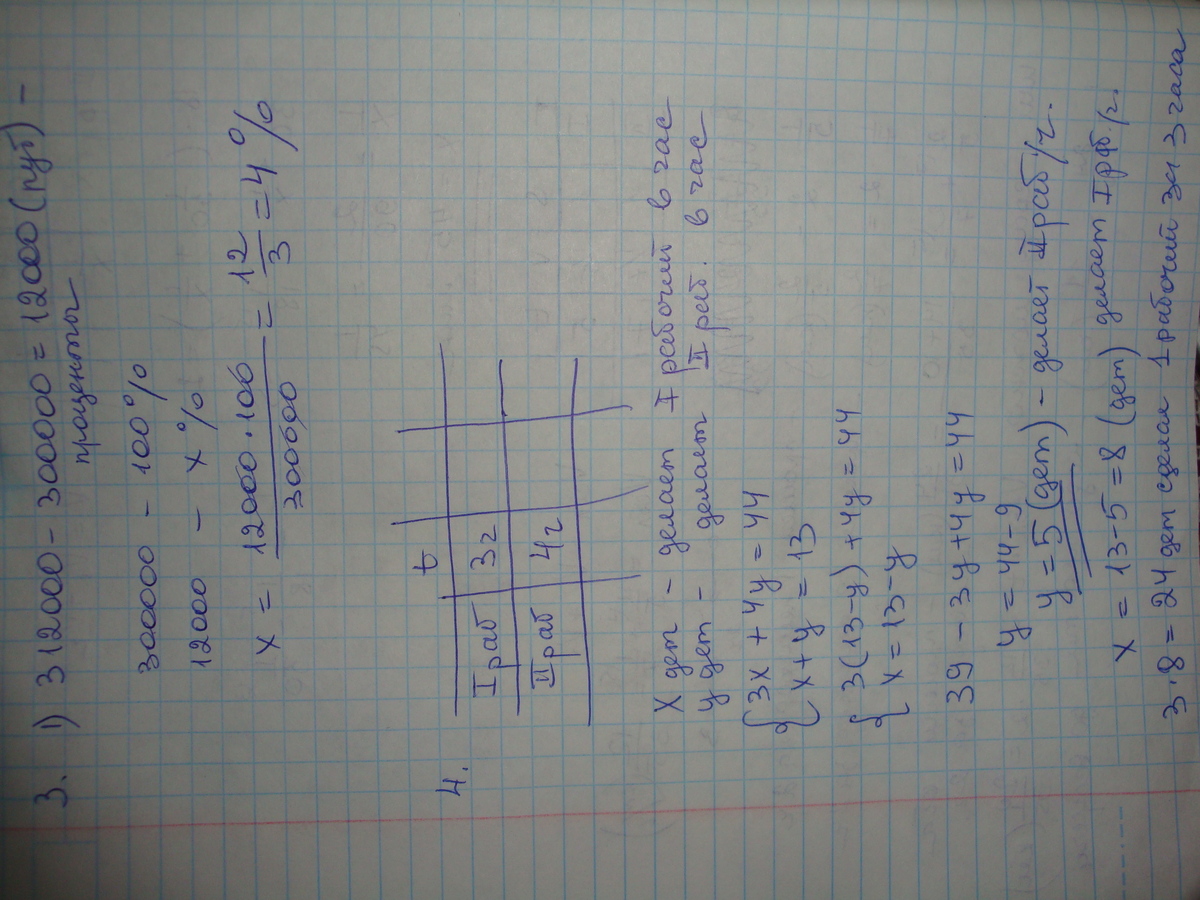 3. 1) 312000 - 300000 = 12000 (руб) -
проценты
300000 - 100%
12000 - x%
x = 12000·100/300000 = 12/3 = 4%
4.
t
I раб 3г
II раб 4г
X дет - делает I рабочий в час
y дет - делает II раб. в час
{ 3x + 4y = 44
x + y = 13
{ 3(13-y) + 4y = 44
x = 13 - y
39 - 3y + 4y = 44
y = 44 - 9
y = 5 (дет) - делает II раб/ч.
x = 13 - 5 = 8 (дет) делает I рб./ч.
3·8 = 24 дет сделал 1 рабочий за 3 часа